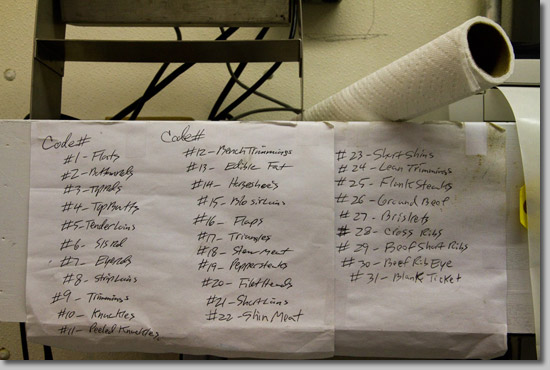 Code#
#1- Flats
#2- Bottomrds
#3- Toprds
#4- TopButts
#5- Tenderloins
#6- Sisrnd
#7- Eyerds
#8- Striploins
#9- Trimmings
#10- Knuckles
#11- Peeled Knuckles
Code#
#12- BenchTrimmings
#13- Edible Fat
#14- Horseshoes
#15- B/o sirloins
#16- Flaps
#17- Triangles
#18- Stew meat
#19- Peppersteaks
#20- Filetheads
#21- Shortloins
#22- Shin Meat
#23- Short Shins
#24- Lean Trimmings
#25- Flank Steaks
#26- Ground Beef
#27- Briskets
#28- Cross Ribs
#29- Beef Short Ribs
#30- Beef Rib Eye
#31- Blank Ticket